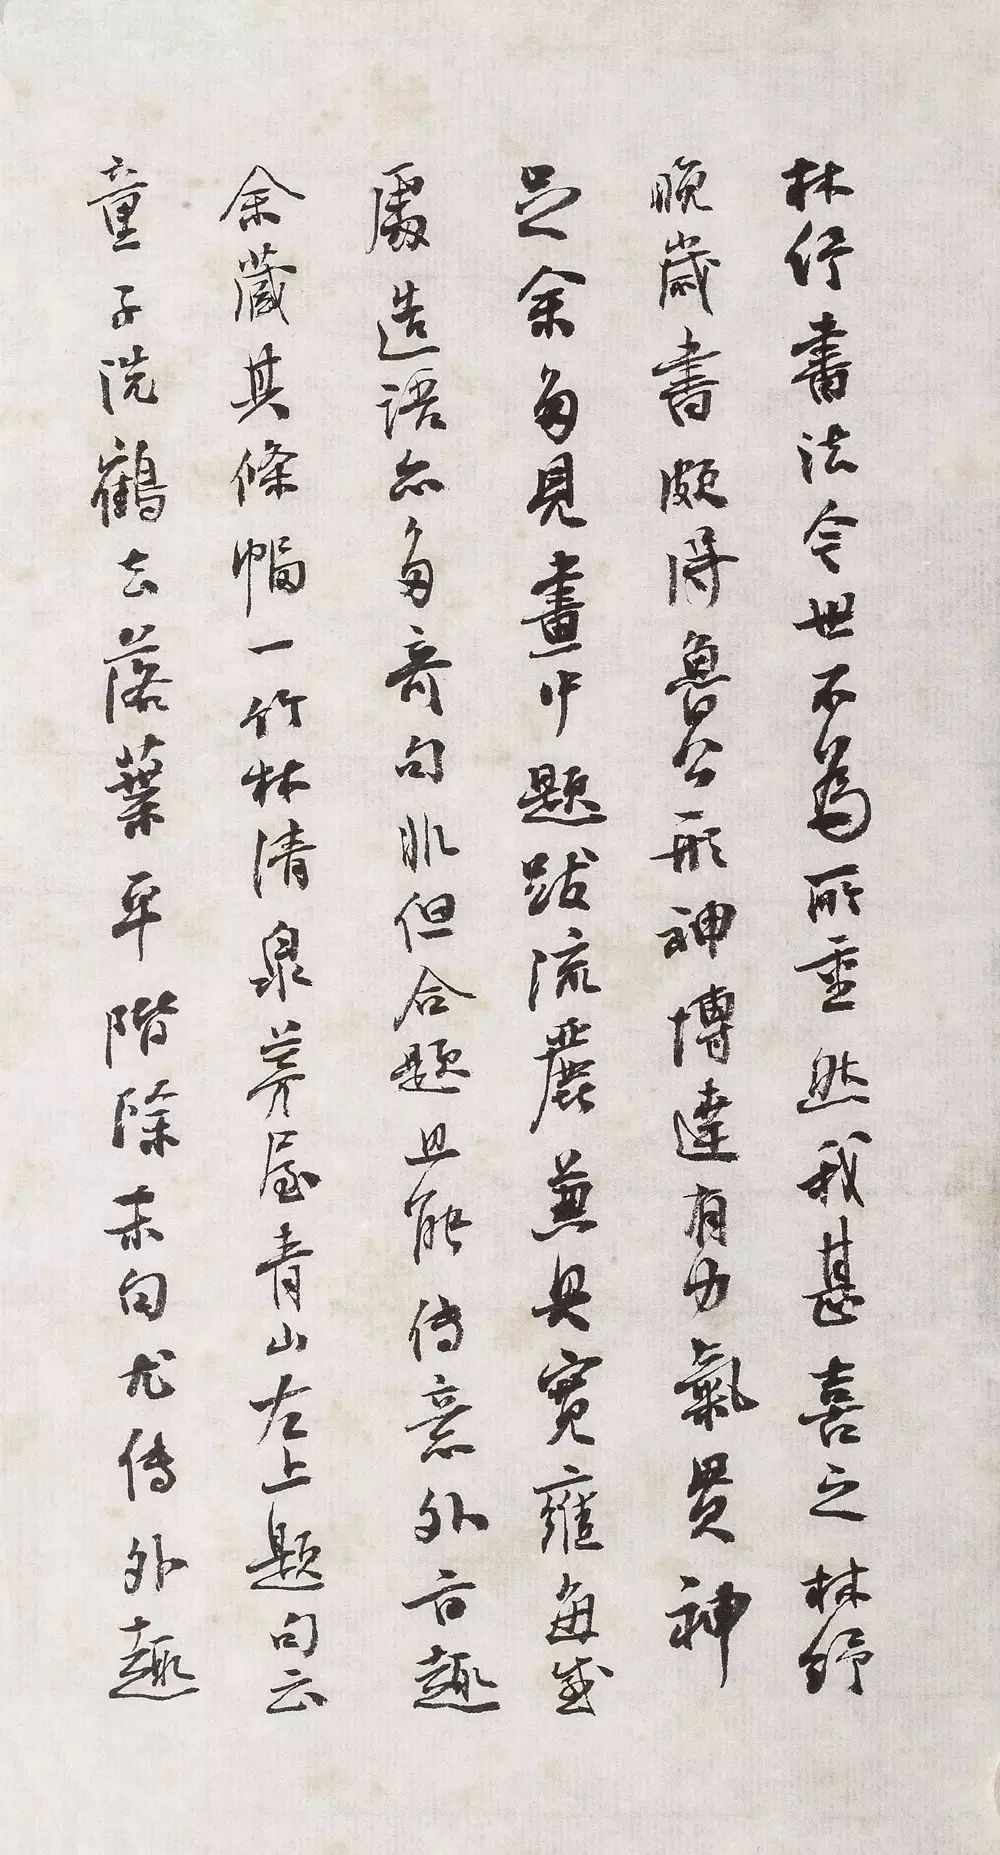 林紓書法今世不為所重然我甚喜之林紓
晚歲書頗得魯公形神博達有力氣貫神
足余多見畫中題跋流麗兼具寬雍每或
處造語亦多奇句非但合題且能传意外言趣
余藏其條幅一竹林清泉茅屋青山左上題句云
童子洗鶴去落葉平階除末句尤传外趣